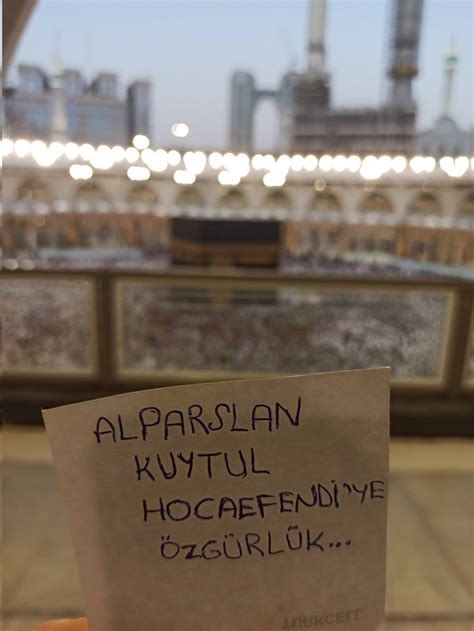 ALPARSLAN
KUYTUL
HOCAEFENDİ'YE
ÖZGÜRLÜK...
TURKCELL